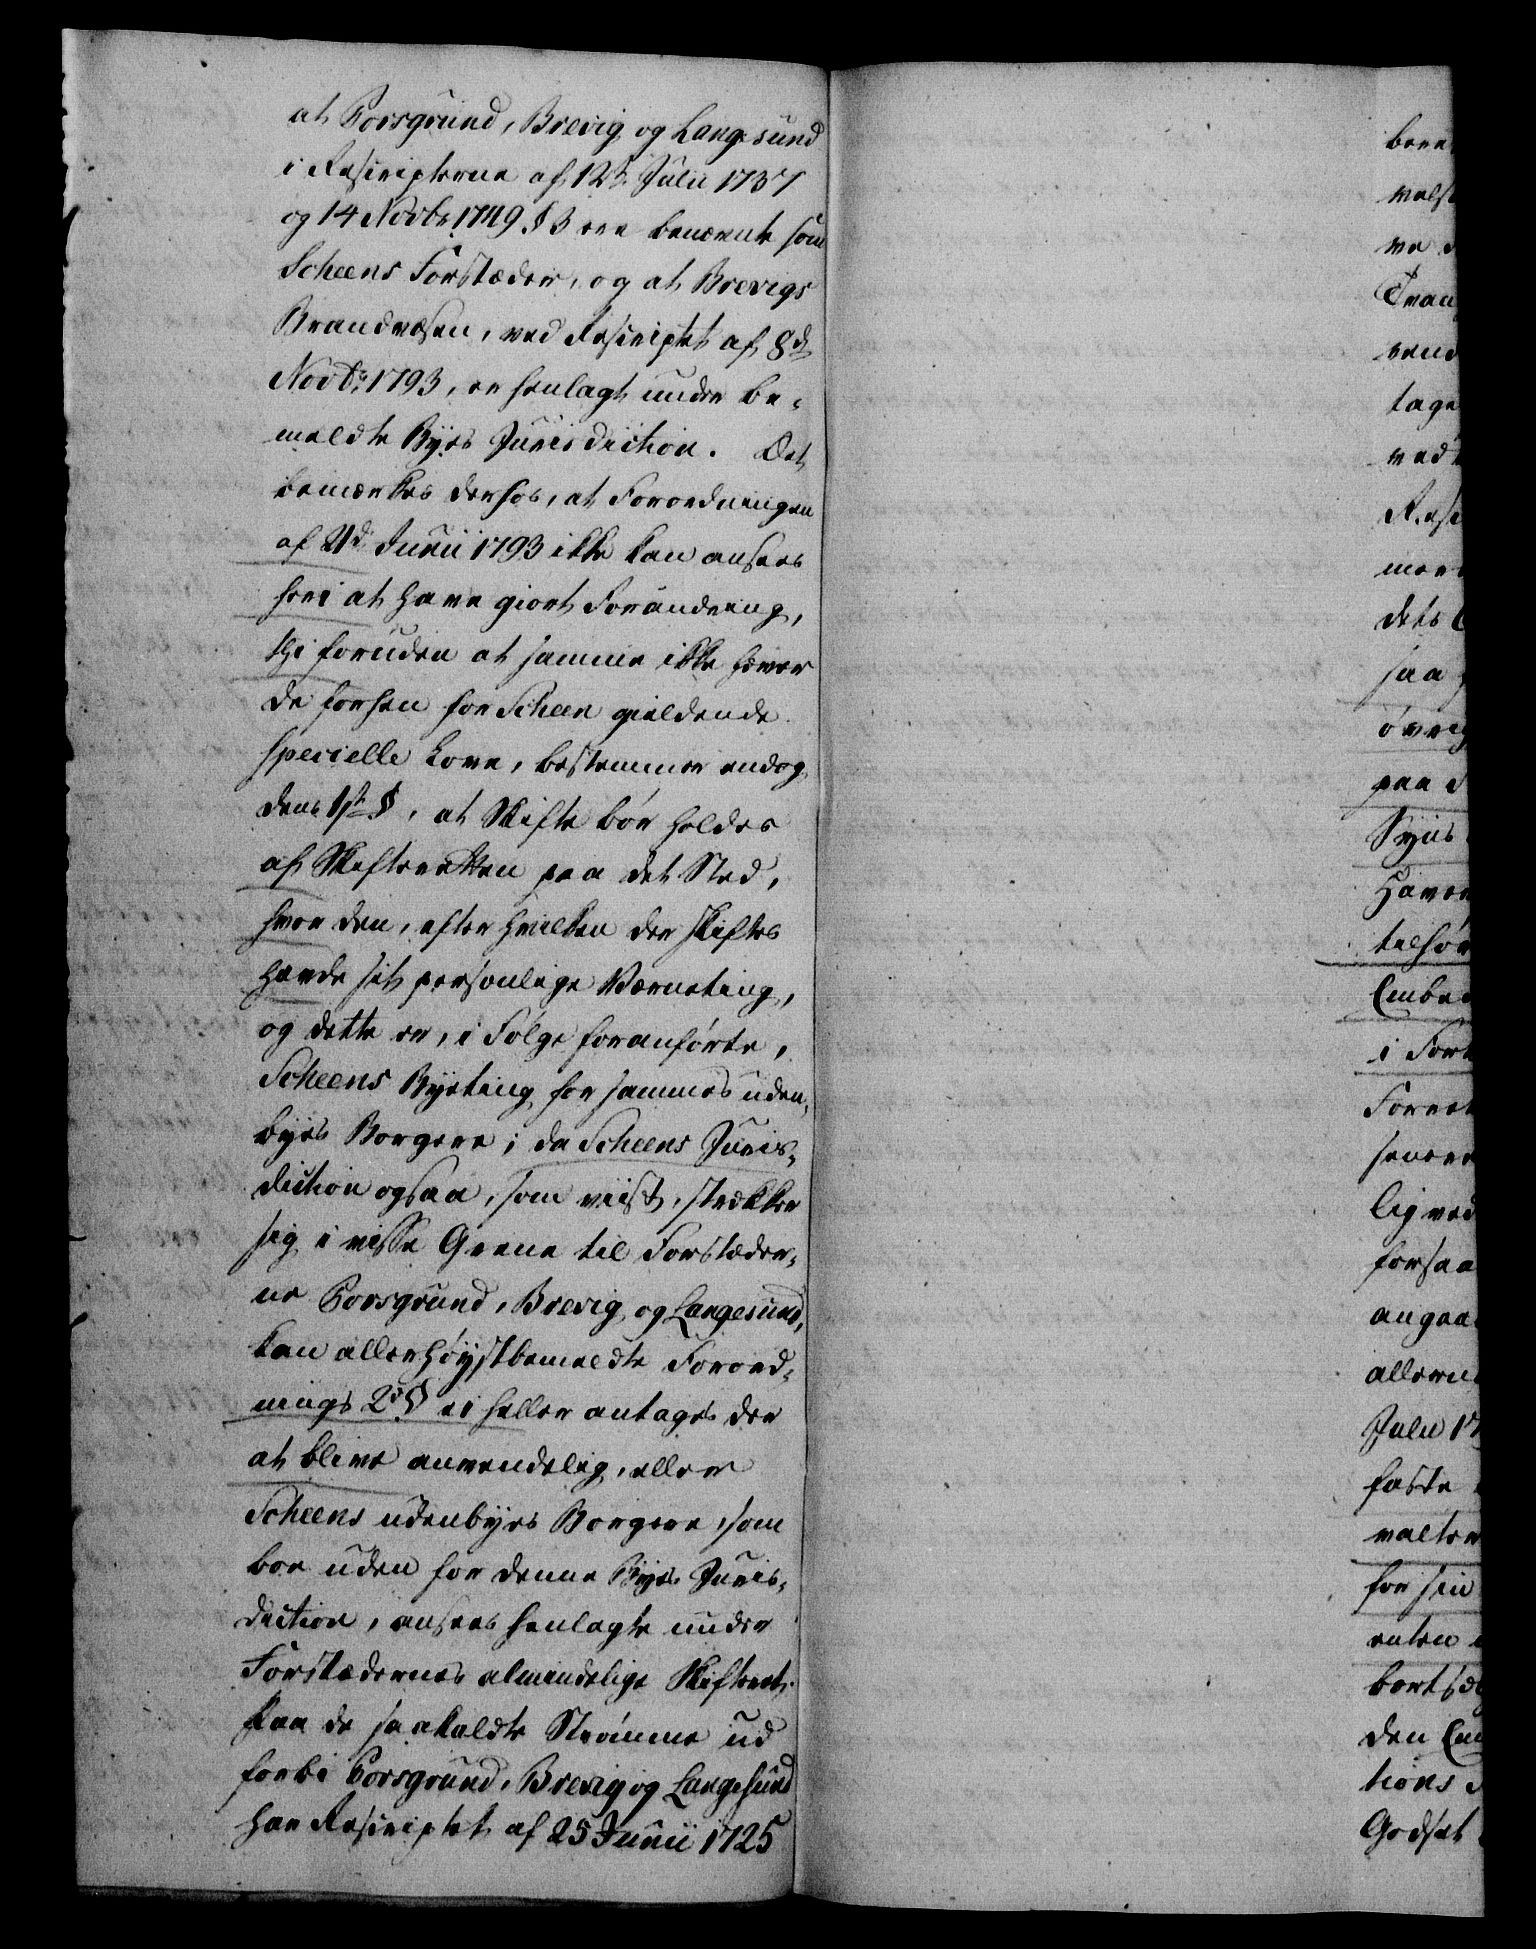 at Porsgrund, Brevig og Langesund
i Rescripterne af 12te Julii 1737
og 14 Novbr. 1749 § 3 ere benævnte som
Scheens Forstæder, og at Brevigs
Brandvæsen, ved Rescriptet af 8de
Novbr. 1793, er henlagt under be-
meldte Byes Jurisdiction. Det
bemærkes derhos, at Forordningen
af 21de Junii 1793 ikke kan ansees
heri at have giort Forandring,
thi foruden at samme ikke hæver
de forhen for Scheen gieldende
specielle Love, bestemmer endog
dens 1ste §, at Skifte bør holdes
af Skifteretten paa det Sted,
hvor den, efter hvilken der skiftes
havde sit personlige Værneting,
og dette er, i Følge foranførte,
Scheens Byeting for sammes uden-
byes Borgere; da Scheens Juris-
diction ogsaa, som viist, strækker
sig i visse Grene til Forstæder-
ne Porsgrund, Brevig og Langesund,
kan allerhøystbemeldte Forord-
nings 2d § ei heller antages der
at blive anvendelig, eller
Scheens udenbyes Borgere, som
boe uden for denne Byes Juris-
diction, ansees henlagte under
Forstædernes almindelige Skifteret.
Paa de saakaldte Strømme ud
forbi Porsgrund, Brevig og Langesund
har Rescriptet af 25 Junii 1725
bere
vels
ve
Tran
rend
tage
ved
Resc
mer
dets
saa
øvrig
paa
Syns
Haver
tilhør
Embe
i For
Forret
senere
lig ved
forsaa
angaa
allern
Julii 17
faste
valter
for sin
enten
bortsæ
den Em
tions
Godset